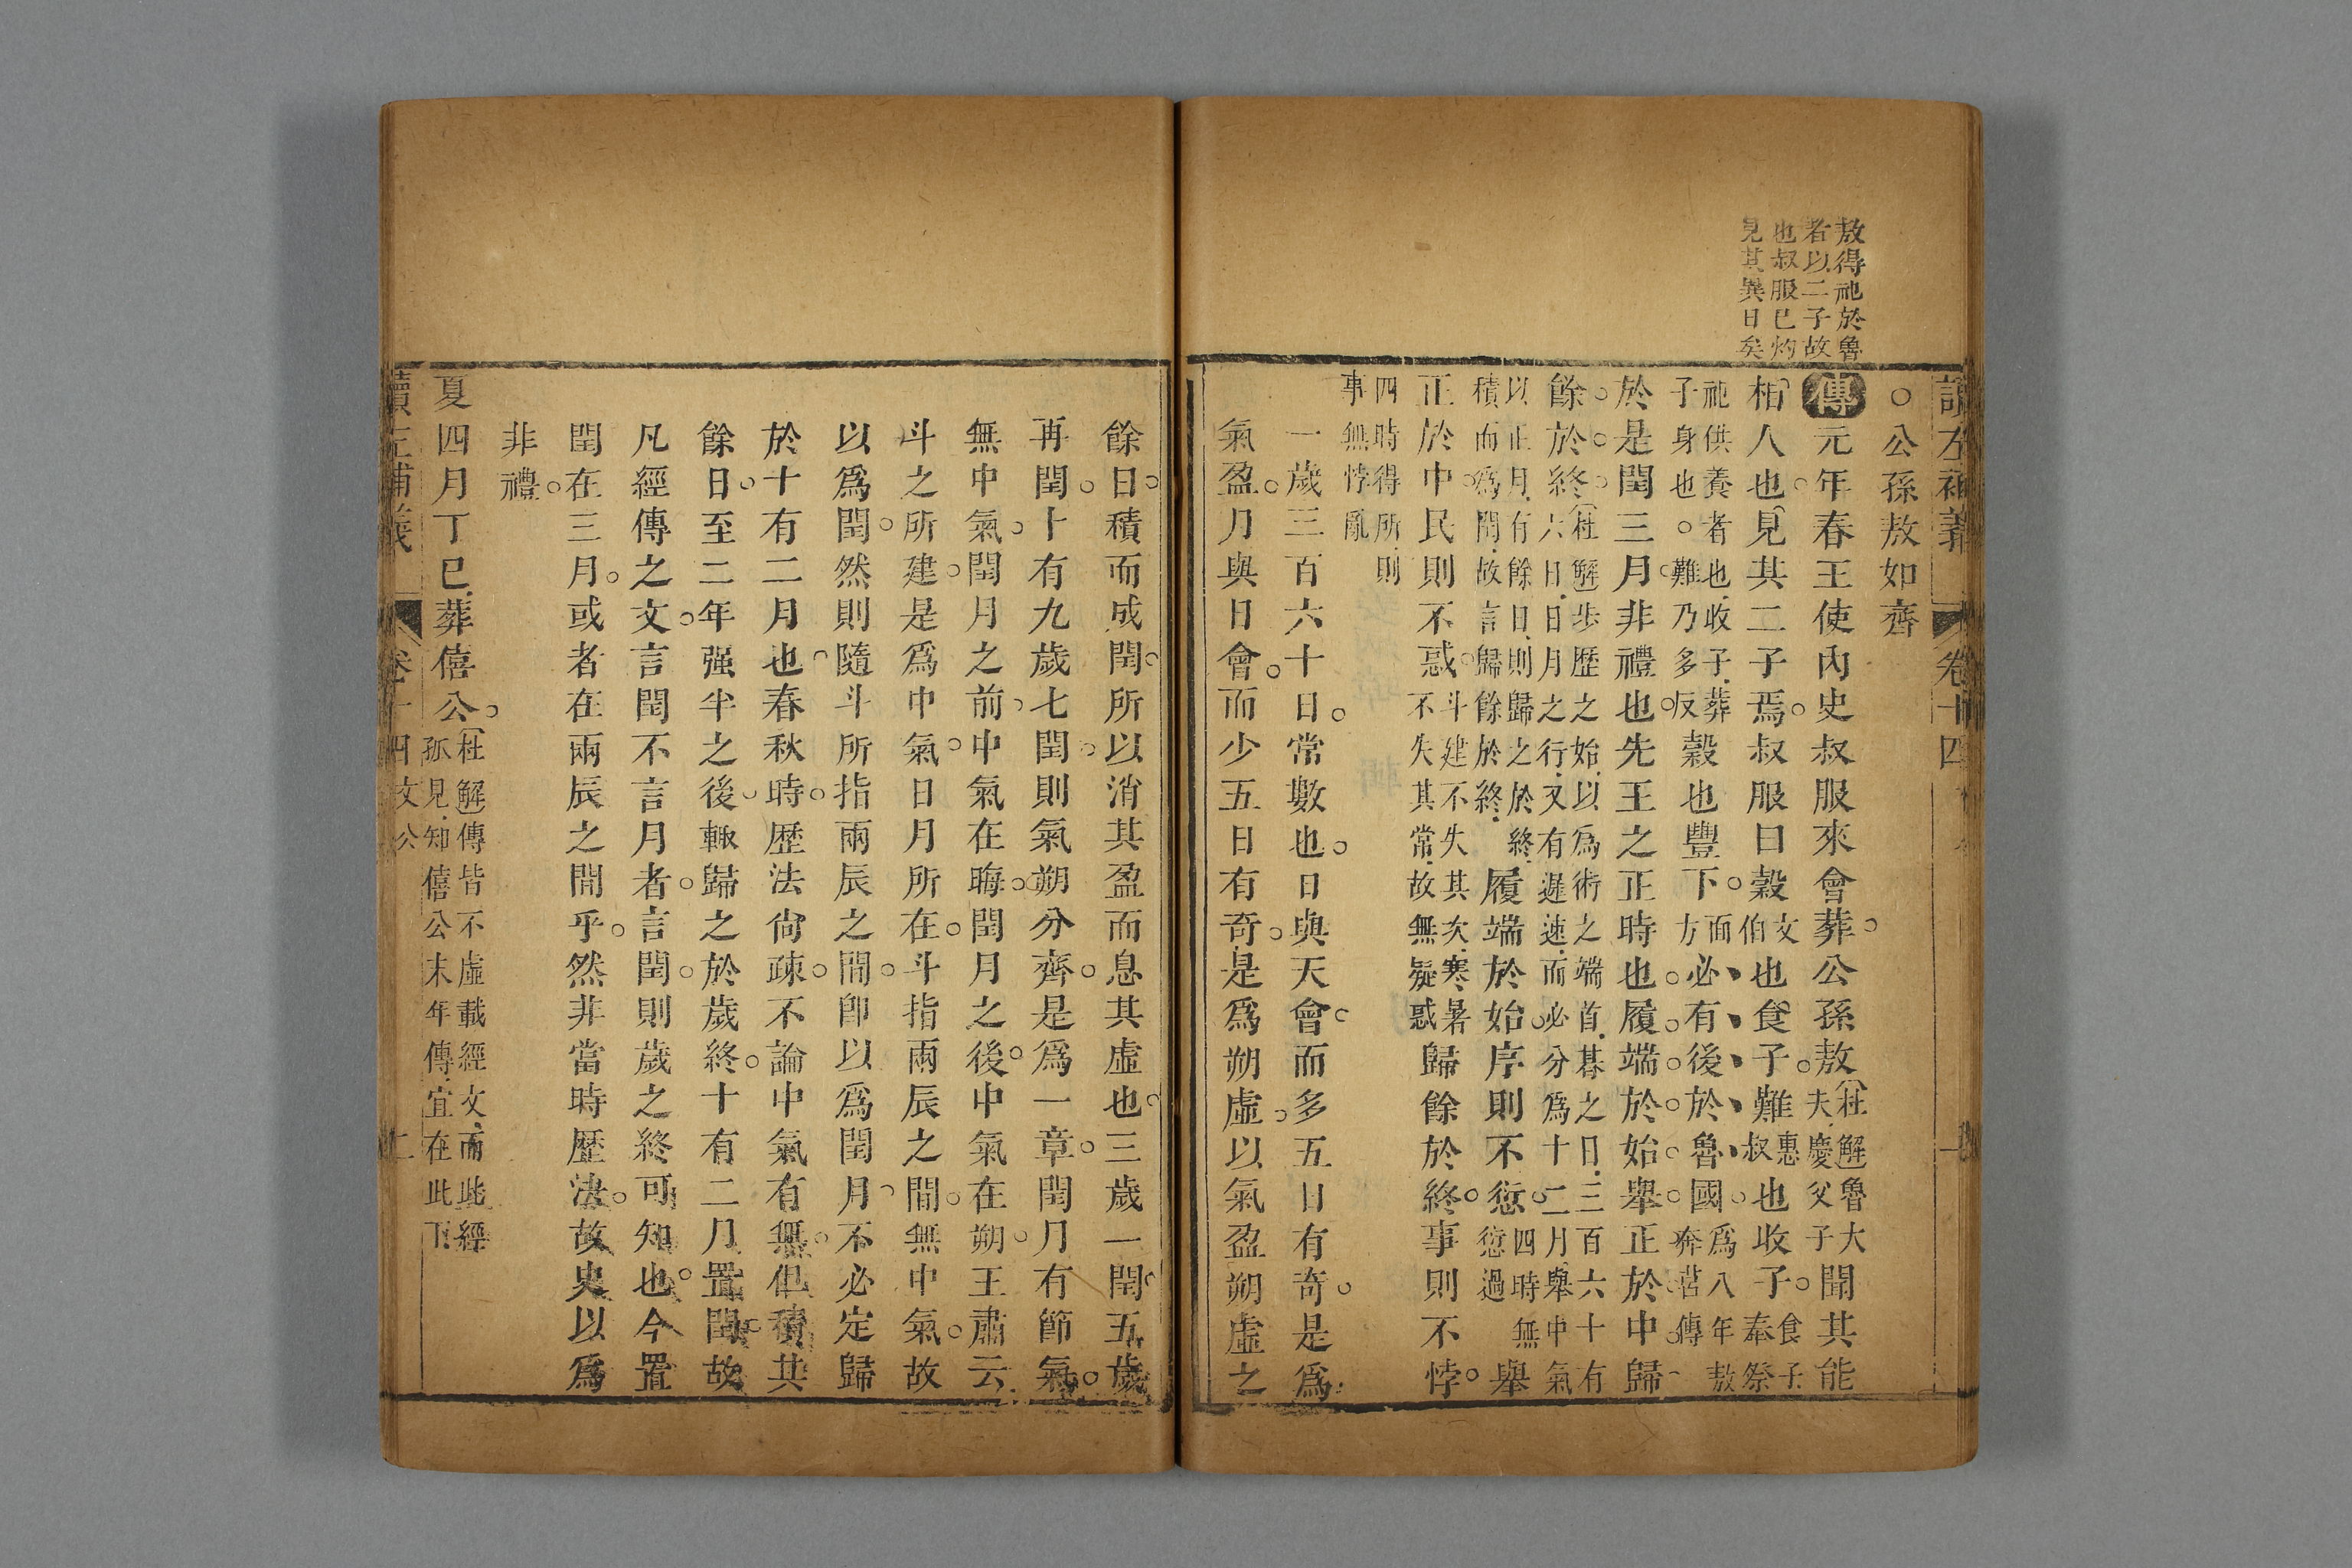 敖得祀於魯
者以二子故
也叔服已灼
見其異日矣
讀左補義 卷十四
○公孫敖如齊
傳元年春王使內史叔服來會葬公孫敖杜解魯大夫慶父子聞其能
相人也見其二子焉叔服曰穀文伯也食子難惠叔也收子食子奉祭
祀供養者也收子葬子身也○難乃多反穀也豐下面方必有後於魯國為八年敖奔莒傳
於是閏三月非禮也先王之正時也履端於始舉正於中歸
餘於終杜解步歷之始以為術之端首朞之日三百六十有六日日月之行又有遲速而必分為十二月舉中氣
以正月有餘日則歸之於終積而為閏故言歸餘於終履端於始序則不愆四時無愆過舉
正於中民則不惑斗建不失其次寒暑不失其常故無疑惑歸餘於終事則不悖
四時得所則事無悖亂
一歲三百六十日常數也日與天會而多五日有奇是為
氣盈月與日會而少五日有奇是為朔虛以氣盈朔虛之
餘日積而成閏所以消其盈而息其虛也三歲一閏五歲
再閏十有九歲七閏則氣朔分齊是為一章閏月有節氣
無中氣閏月之前中氣在晦閏月之後中氣在朔王肅云
斗之所建是為中氣日月所在斗指兩辰之間無中氣故
以為閏然則隨斗所指兩辰之間即以為閏月不必定歸
於十有二月也春秋時歷法尚疎不論中氣有無但積其
餘日至二年强半之後輙歸之於歲終十有二月置閏故
凡經傳之文言閏不言月者言閏則歲之終可知也今置
閏在三月或者在兩辰之間乎然非當時歷法故史以為
非禮
夏四月丁巳葬僖公杜解傳皆不虛載經文而此經孤見知僖公末年傳宜在此下
讀左補義 卷十四文公 二